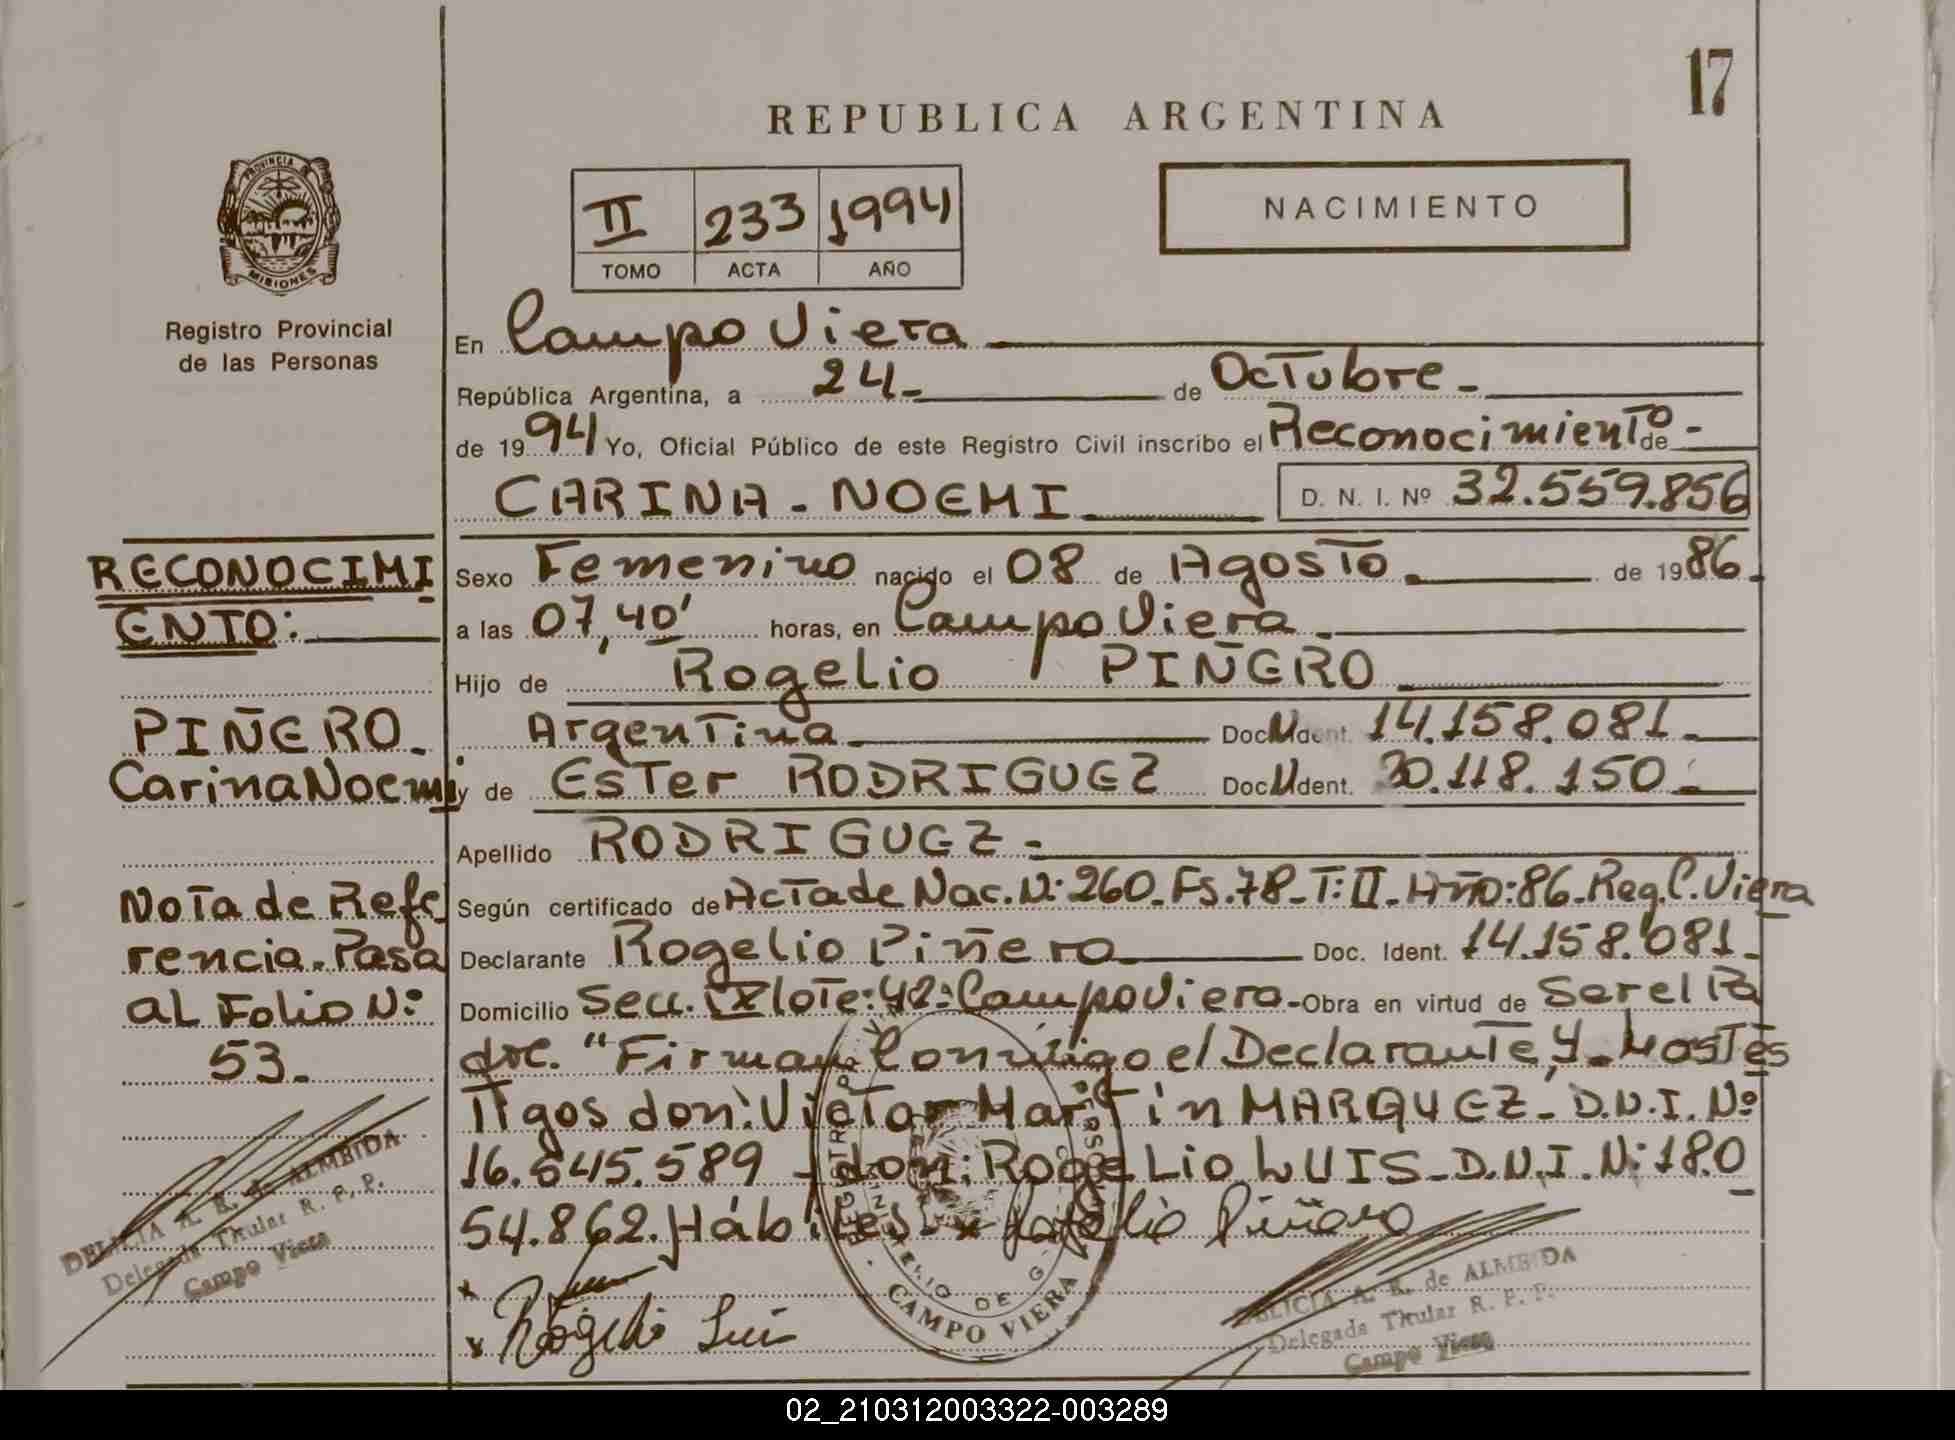 17
REPUBLICA ARGENTINA
II 233 1994
TOMO ACTA AÑO
NACIMIENTO
PROVINCIA DE
MISIONES
Registro Provincial
de las Personas
En Campo Viera
República Argentina, a 24 de Octubre
de 1994 Yo, Oficial Público de este Registro Civil inscribo el Reconocimiento de
CARINA - NOEMI D. N. I. Nº 32.559.856
Sexo Femenino nacido el 08 de Agosto de 1986
a las 07,40' horas, en Campo Viera
Hijo de Rogelio PIÑERO
Argentina Doc. Ident. 14.158.081
y de Ester RODRIGUEZ Doc. Ident. 30.118.150
Apellido RODRIGUEZ
Según certificado de Acta de Nac. N: 260_Fs.78_T:II_Año:86_Reg.C.Viera
Declarante Rogelio Piñero Doc. Ident. 14.158.081
Domicilio Secc. IX Lote:42-Campo Viera-Obra en virtud de Ser el Pa
dre. "Firman Conmigo el Declarante, y los Tes
Tigos don: Victor Martin MARQUEZ_D.N.I.Nº
16.545.589 - don: ROGELio LUIS_D.N.I.N: 18.0
54.862. Hábiles x Rogelio Piñero
x
x Rogelio Luis
RECONOCIMI
ENTO:
PIÑERO
Carina Noemi
Nota de Refe
rencia. Pasa
al Folio N:
53.
DELICIA A. R. de ALMEIDA
Delegada Titular R. P. P.
Campo Viera
CAMPO VIERA
DELICIA A. R. de ALMEIDA
Delegada Titular R. P. P.
Campo Viera
02_210312003322-003289